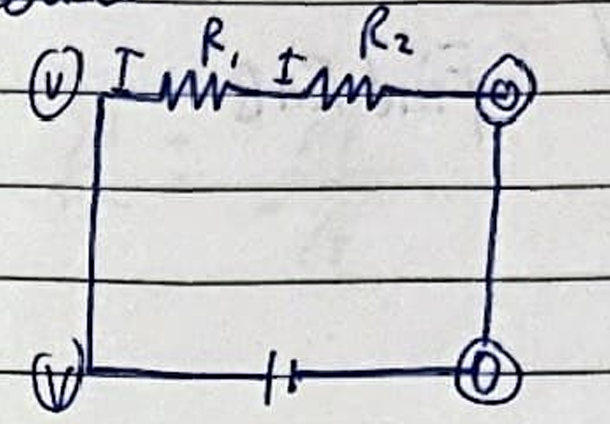 V I R₁ I R₂ 0
V 0